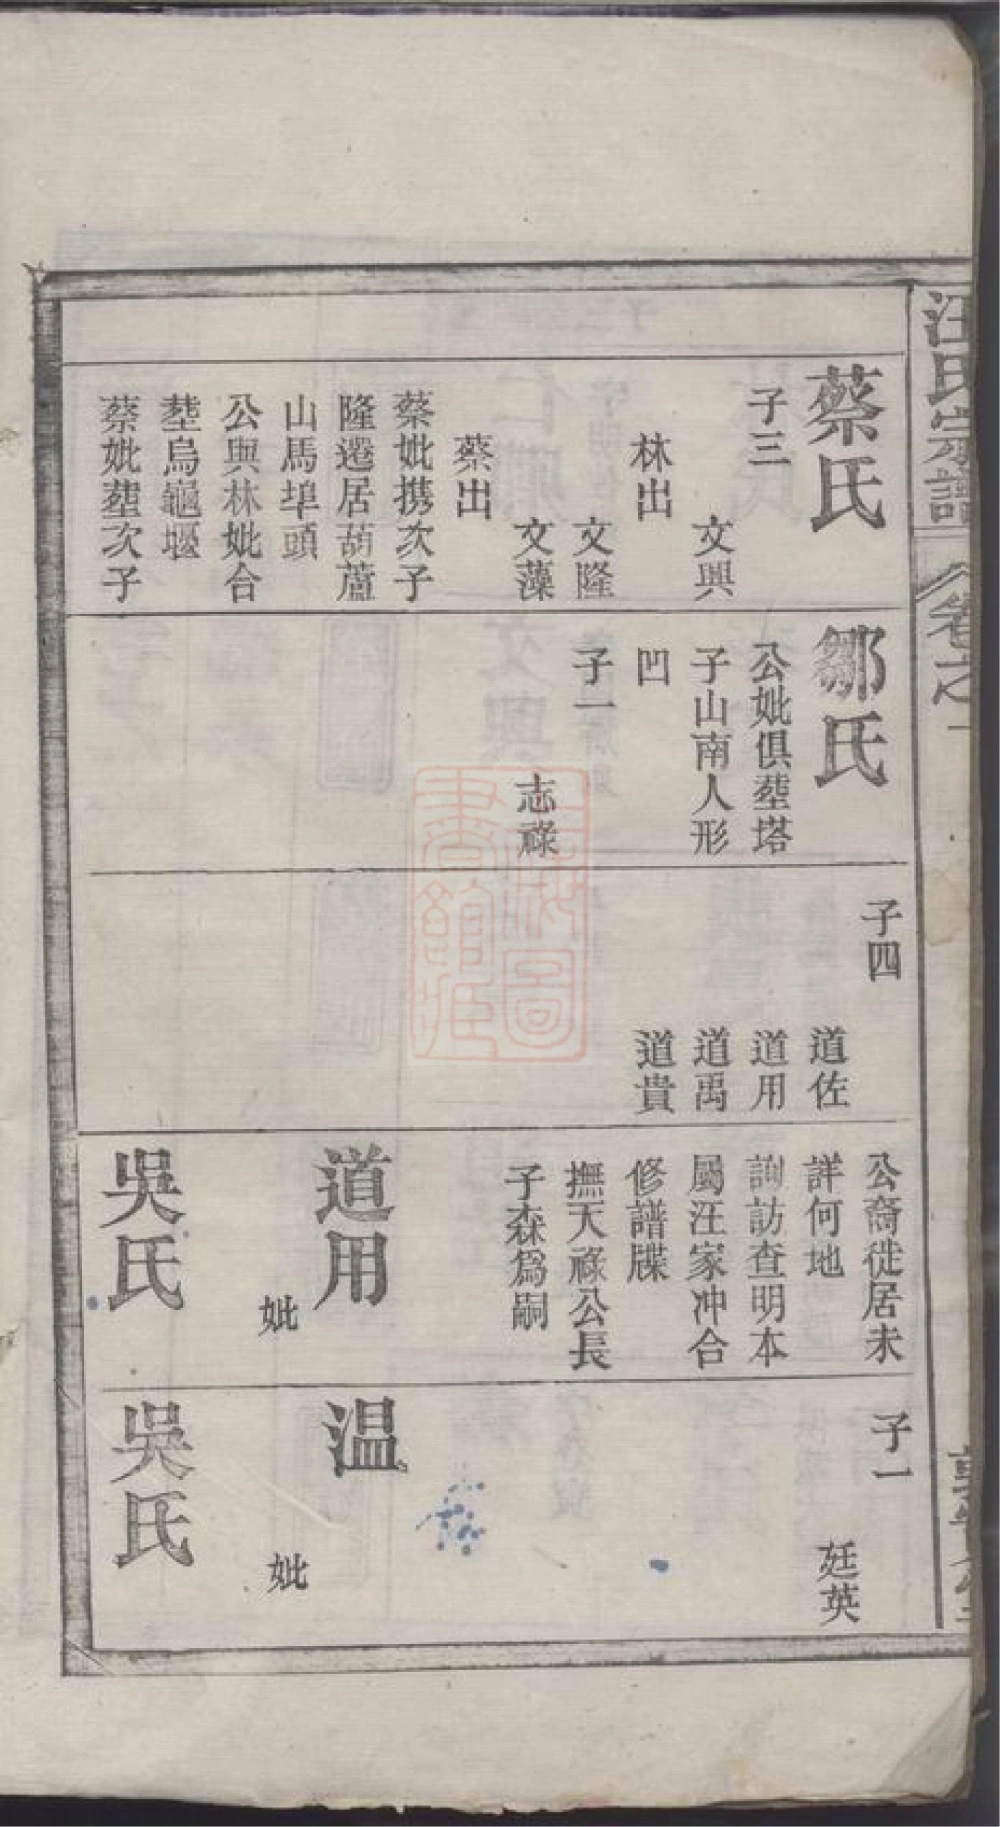 汪氏宗譜
卷之一
蔡氏
子三
文興
林出
文隆
文藻
蔡出
蔡妣携次子
隆遷居葫蘆
山馬埠頭
公與林妣合
塟烏龜堰
蔡妣塟次子
鄒氏
公妣俱塟塔
子山南人形
凹
子一
志祿
子四
道佐
道用
道禹
道貴
公裔徙居未
詳何地
詢訪查明本
屬汪家冲合
修譜牒
撫天祿公長
子森爲嗣
道用
妣
吳氏
子一
廷英
温
妣
吳氏
上海圖
書館藏